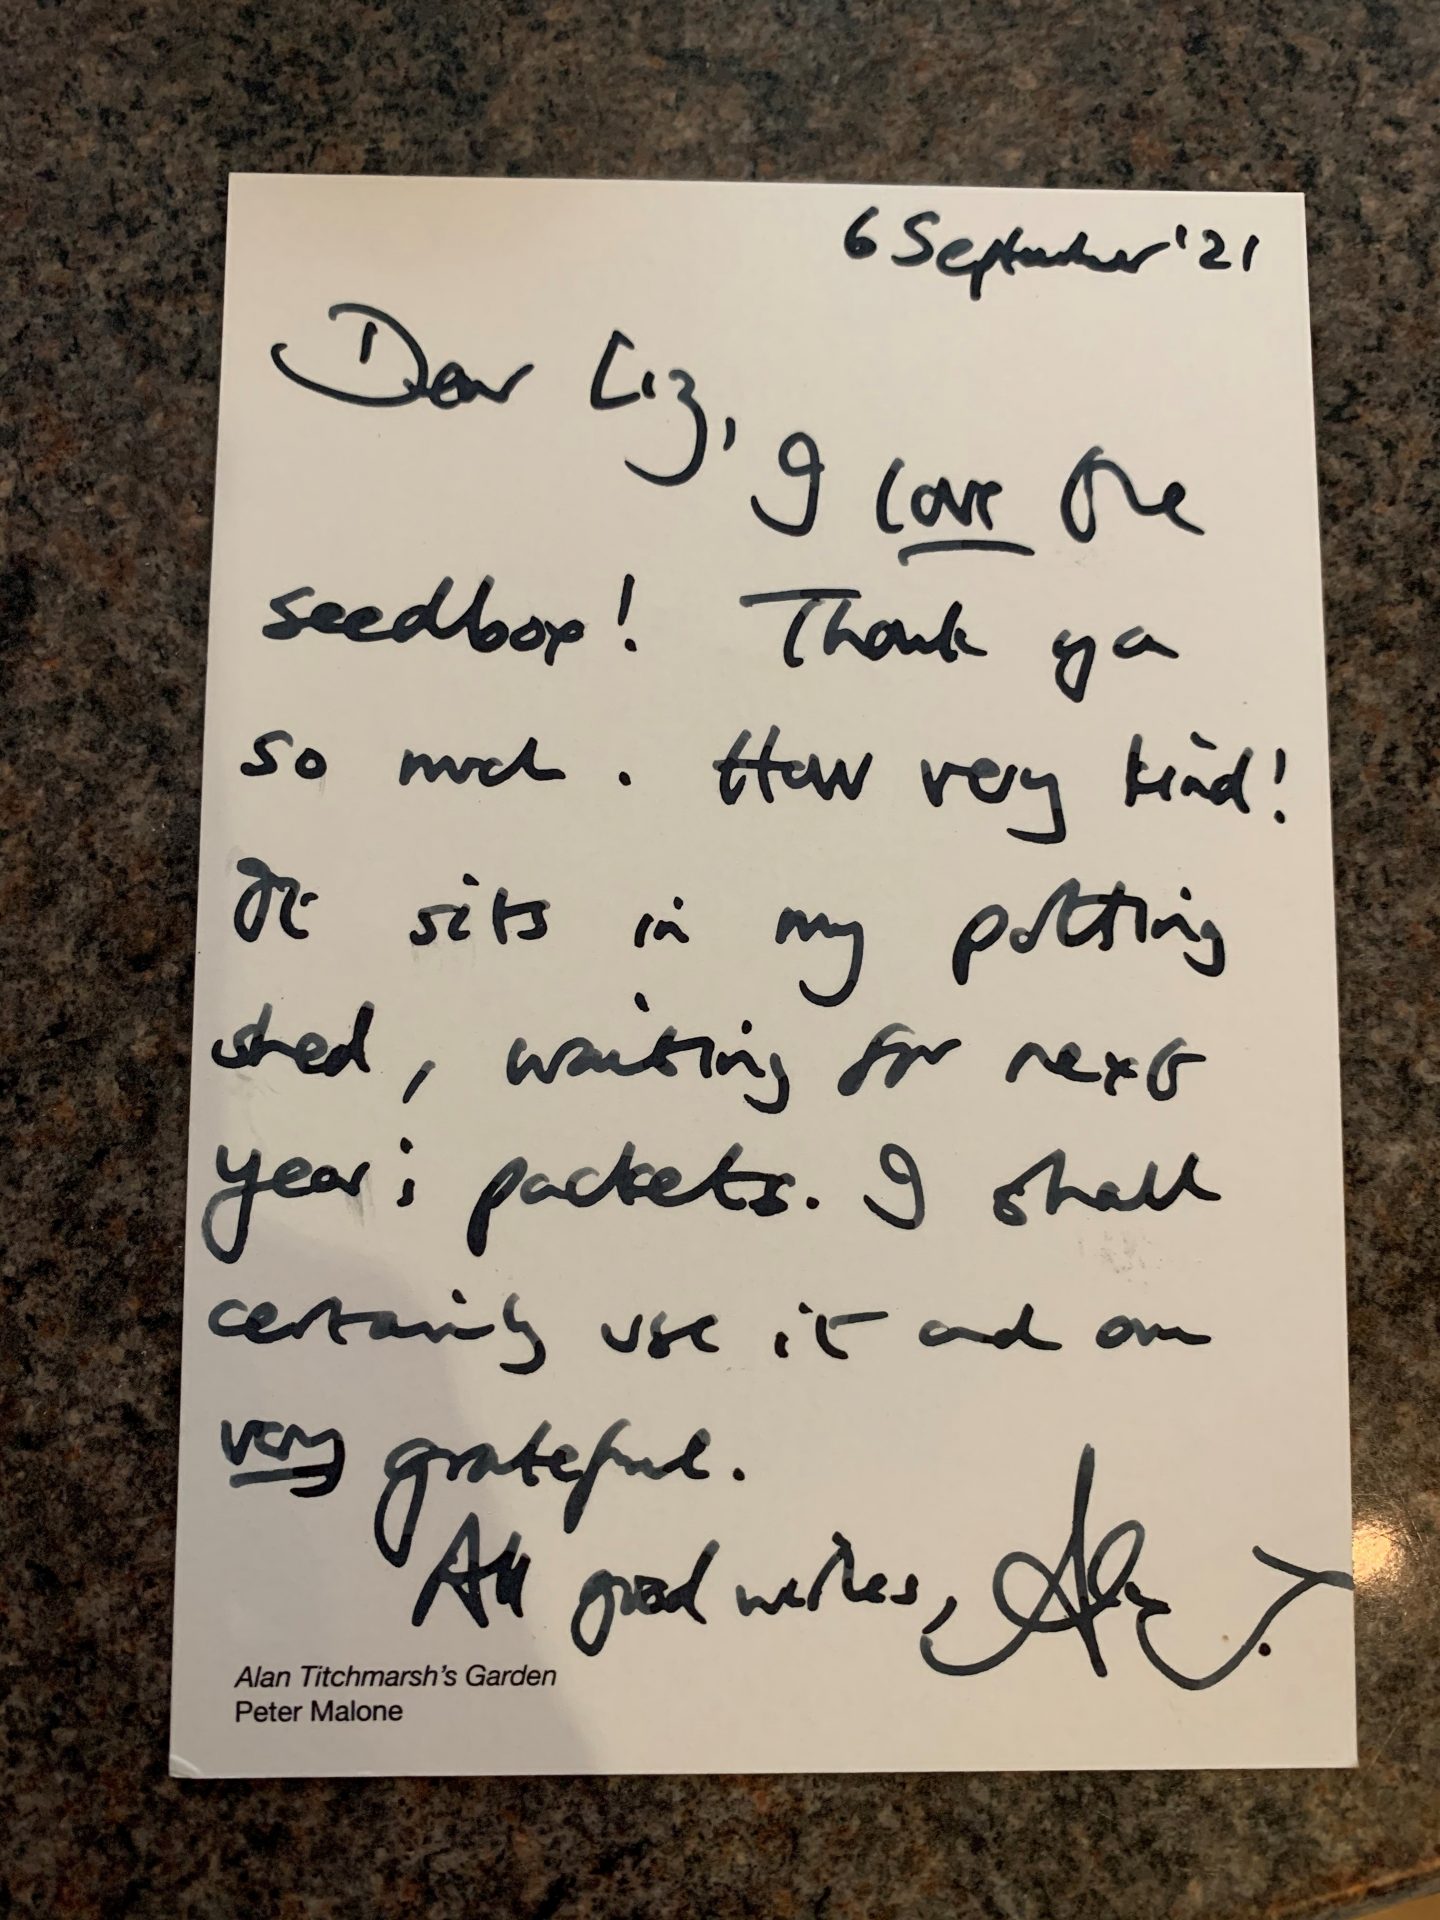 6 September '21
Dear Liz,
I love the
seedbox! Thank you
so much. How very kind!
It sits in my potting
shed, waiting for next
year's packets. I shall
certainly use it and am
very grateful.
All good wishes, Alan
Alan Titchmarsh's Garden
Peter Malone